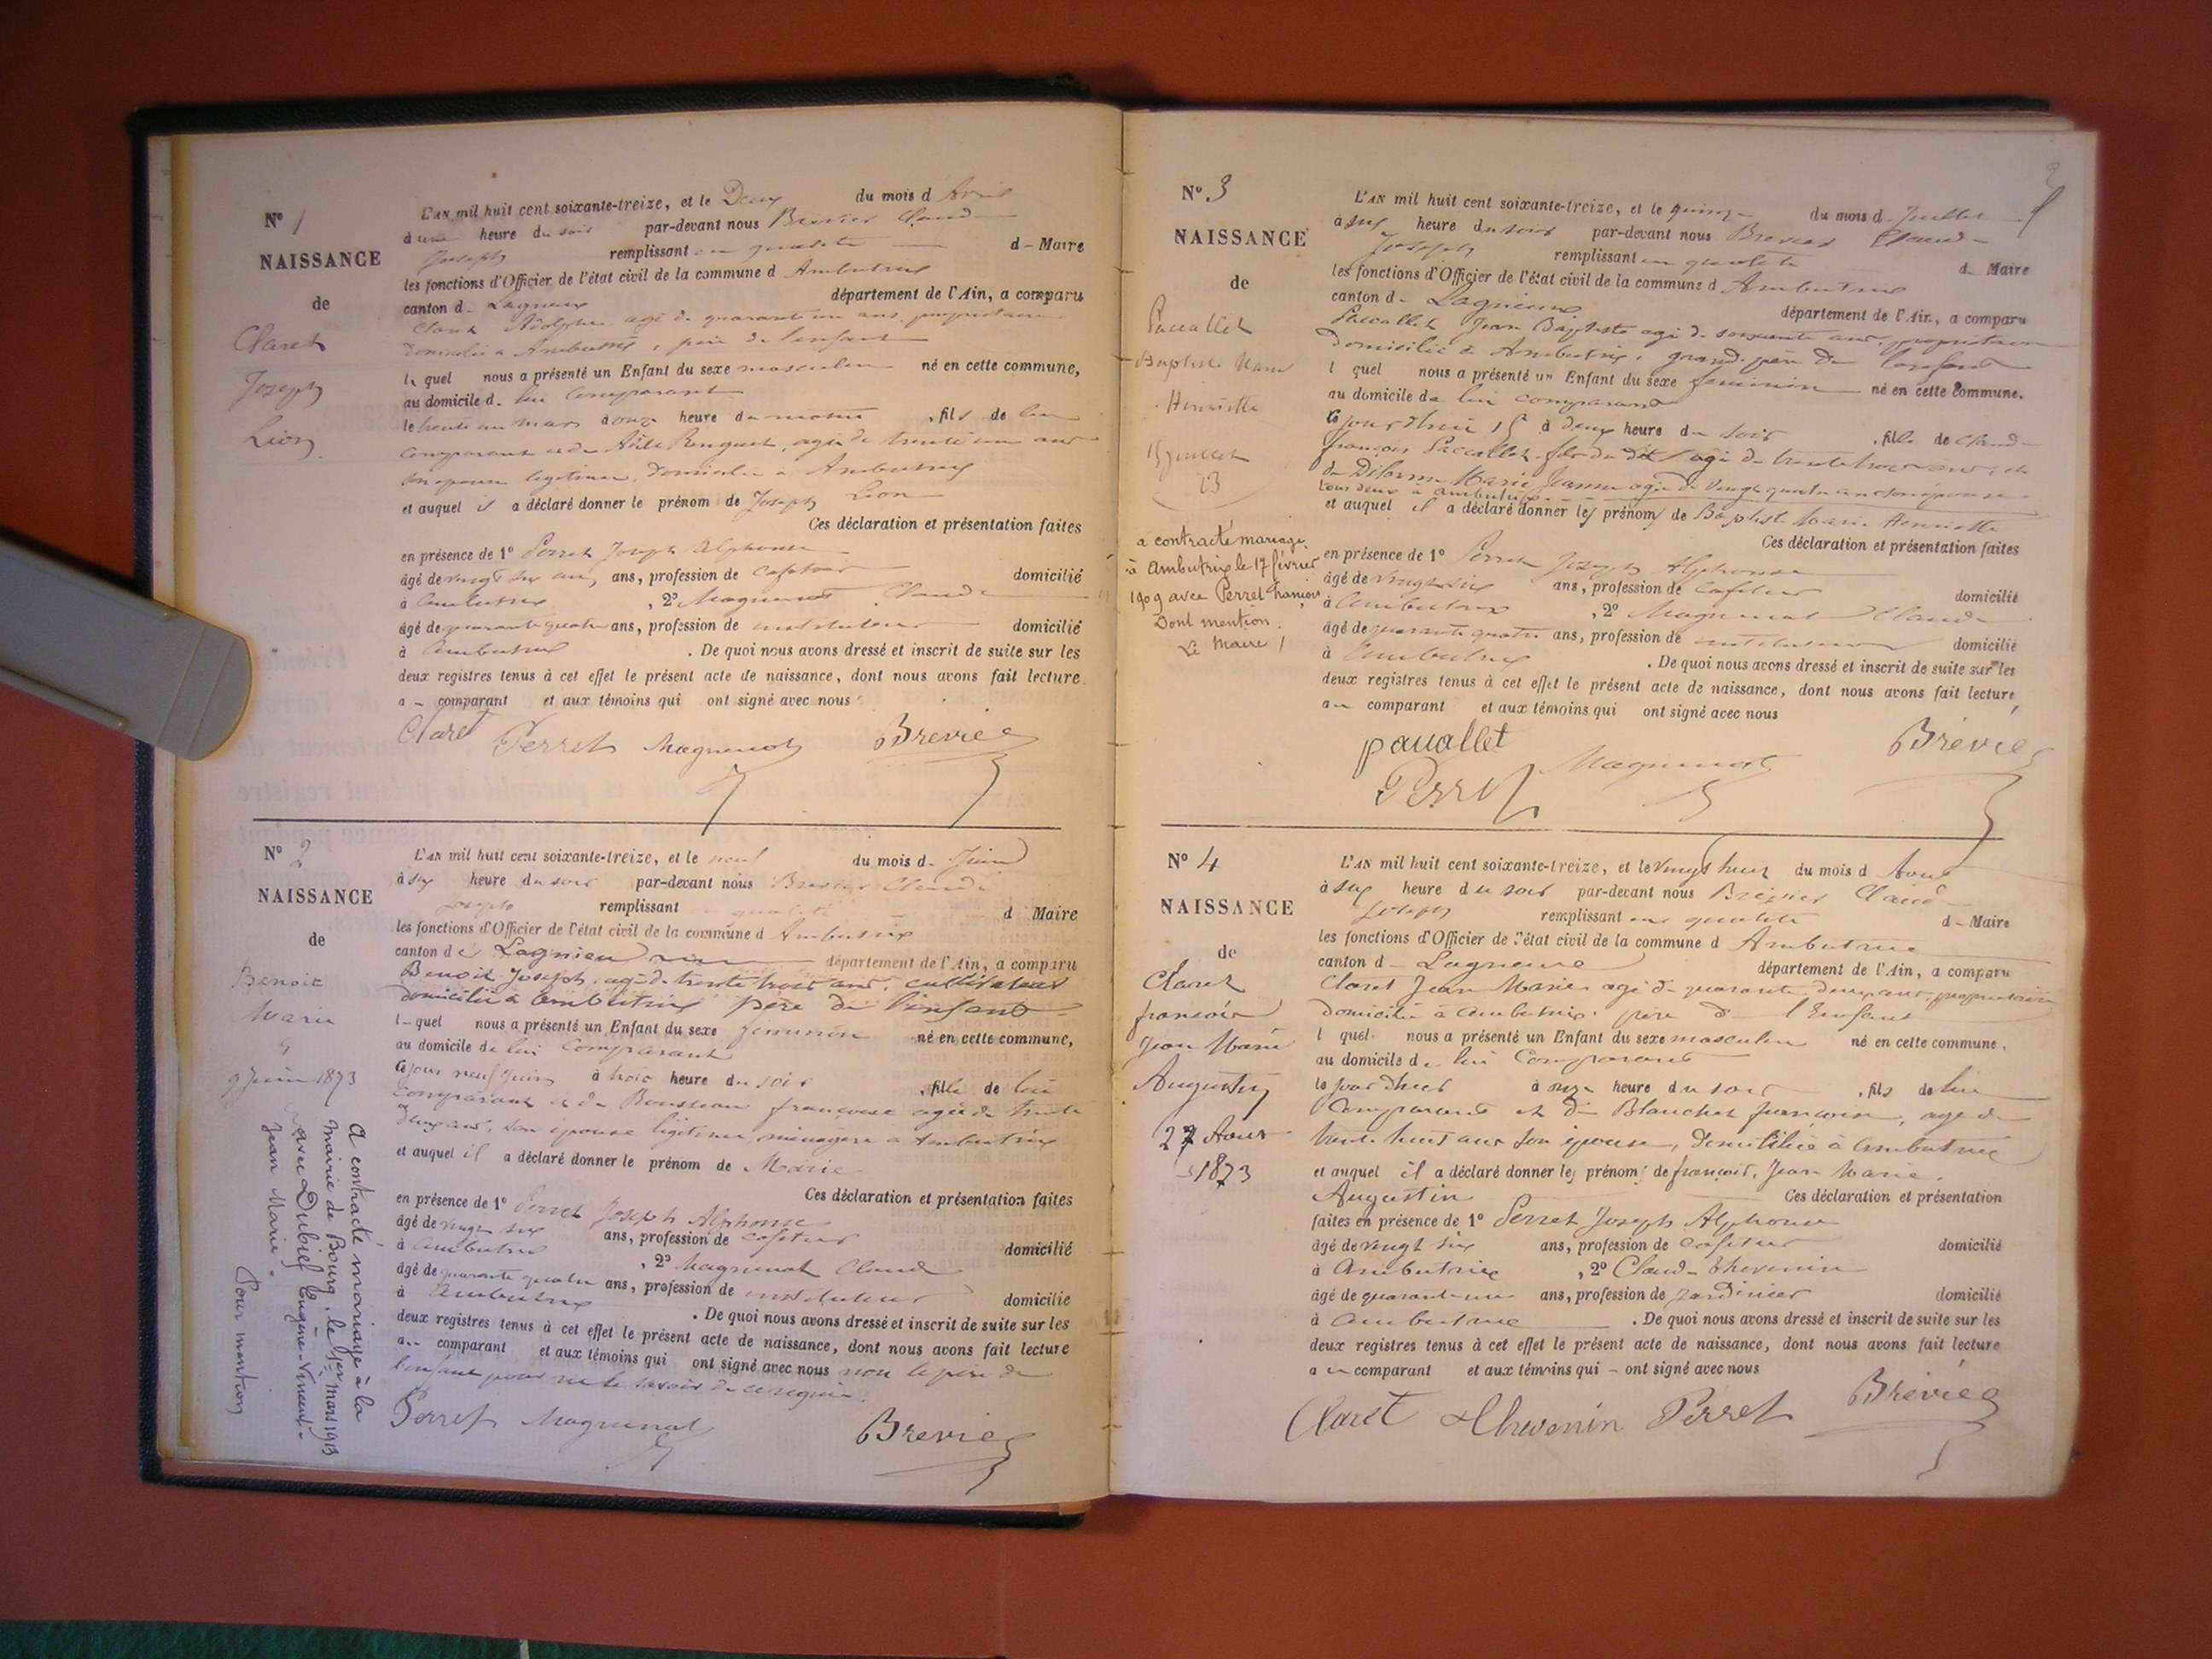 N° 1
NAISSANCE
de
Claret
Joseph
Léon
L'AN mil huit cent soixante-treize, et le Deux du mois d Avril
à une heure du soir par-devant nous Brevier Claude
Joseph remplissant en qualité d - Maire
les fonctions d'Officier de l'état civil de la commune d Ambutrix
canton d - Lagnieu département de l'Ain, a comparu
Claret Adolphe agé de quarante un ans propriétaire
domicilié à Ambutrix, père de l'enfant
le quel nous a présenté un Enfant du sexe masculin né en cette commune,
au domicile d - lui comparant
le trente un mars à onze heure du matin , fils de lui
comparant et de agée de trente un ans
son épouse légitime, domiciliée à Ambutrix
et auquel il a déclaré donner le prénom de Joseph Léon
Ces déclaration et présentation faites
en présence de 1° Perret Joseph Alphonse
âgé de vingt six ans, ans, profession de cafetier domicilié
à Ambutrix , 2° Magnenat Claude
âgé de quarante quatre ans, profession de instituteur domicilié
à Ambutrix . De quoi nous avons dressé et inscrit de suite sur les
deux registres tenus à cet effet le présent acte de naissance, dont nous avons fait lecture
a - comparant et aux témoins qui ont signé avec nous
Claret Perret Magnenat Brevier
N° 2
NAISSANCE
de
Benoit
Marie
9 Juin 1873
L'AN mil huit cent soixante-treize, et le neuf du mois d - Juin
à six heure du soir par-devant nous Brevier Claude
Joseph remplissant en qualité d Maire
les fonctions d'Officier de l'état civil de la commune d Ambutrix
canton de Lagnieu département de l'Ain, a comparu
Benoit Joseph, agé de trente trois ans, cultivateur
domicilié à Ambutrix père de l'enfant
l - quel nous a présenté un Enfant du sexe féminin né en cette commune,
au domicile de lui comparant
ce jour neuf juin à trois heure du soir , fille de lui
comparant et de Rousseau françoise agée de trente
deux ans, son épouse légitime, ménagère à Ambutrix
et auquel il a déclaré donner le prénom de Marie
Ces déclaration et présentation faites
en présence de 1° Perret Joseph Alphonse
âgé de vingt six ans, profession de cafetier domicilié
à Ambutrix , 2° Magnenat Claude
âgé de quarante quatre ans, profession de instituteur domicilié
à Ambutrix . De quoi nous avons dressé et inscrit de suite sur les
deux registres tenus à cet effet le présent acte de naissance, dont nous avons fait lecture
a - comparant et aux témoins qui ont signé avec nous non le père de
l'enfant pour ne le savoir de ce requis.
Perret Magnenat Brevier
A contracté mariage à la
mairie de Bourg, le 1er mars 1913
avec Dubief Eugène-Vincent-
Jean Marie.
Pour mention
N° 3
NAISSANCE
de
Paccallet
Baptiste Marie
Henriette
15 juillet
73
a contracté mariage
à Ambutrix le 17 février
1909 avec Perret François
Dont mention.
Le Maire
L'AN mil huit cent soixante-treize, et le quinze du mois d - Juillet
à six heure du soir par-devant nous Brevier Claude
Joseph remplissant en qualité d - Maire
les fonctions d'Officier de l'état civil de la commune d Ambutrix
canton d - Lagnieu département de l'Ain, a comparu
Paccallet Jean Baptiste agé de soixante ans, propriétaire
domicilié à Ambutrix, grand père de l'enfant
l quel nous a présenté un Enfant du sexe féminin né en cette commune.
au domicile de lui comparant
ce jour d'hui 15 à deux heure du soir , fille de Claude
françois Paccallet fils du dit agé de trente trois ans, et
de Marie Jeanne agée de vingt quatre ans son épouse
tous deux à Ambutrix
et auquel il a déclaré donner les prénoms de Baptiste Marie Henriette
Ces déclaration et présentation faites
en présence de 1° Perret Joseph Alphonse
âgé de vingt six ans, profession de cafetier domicilié
à Ambutrix , 2° Magnenat Claude
âgé de quarante quatre ans, profession de instituteur domicilié
à Ambutrix . De quoi nous avons dressé et inscrit de suite sur les
deux registres tenus à cet effet le présent acte de naissance, dont nous avons fait lecture,
au comparant et aux témoins qui ont signé avec nous
paccallet Magnenat Brevier
Perret
N° 4
NAISSANCE
de
Claret
françois
Jean Marie
Augustin
27 Aout
1873
L'AN mil huit cent soixante-treize, et le vingt huit du mois d Aout
à six heure du soir par-devant nous Brevier Claude
Joseph remplissant en qualité d - Maire
les fonctions d'Officier de l'état civil de la commune d Ambutrix
canton d - Lagnieu département de l'Ain, a comparu
Claret Jean Marie agé de quarante deux ans, propriétaire
domicilié à Ambutrix père de l'Enfant
l quel nous a présenté un Enfant du sexe masculin né en cette commune.
au domicile d - lui comparant
le jour d'hier à onze heure du soir , fils de lui
comparant et de Blanchet françoise, agée de
trente huit ans son épouse, domiciliée à Ambutrix
et auquel il a déclaré donner les prénoms de françois, Jean Marie,
Augustin Ces déclaration et présentation
faites en présence de 1° Perret Joseph Alphonse
âgé de vingt six ans, profession de cafetier domicilié
à Ambutrix , 2° Claude Thevenin
âgé de quarante ans, profession de jardinier domicilié
à Ambutrix . De quoi nous avons dressé et inscrit de suite sur les
deux registres tenus à cet effet le présent acte de naissance, dont nous avons fait lecture
au comparant et aux témoins qui - ont signé avec nous
Claret Thevenin Perret Brevier